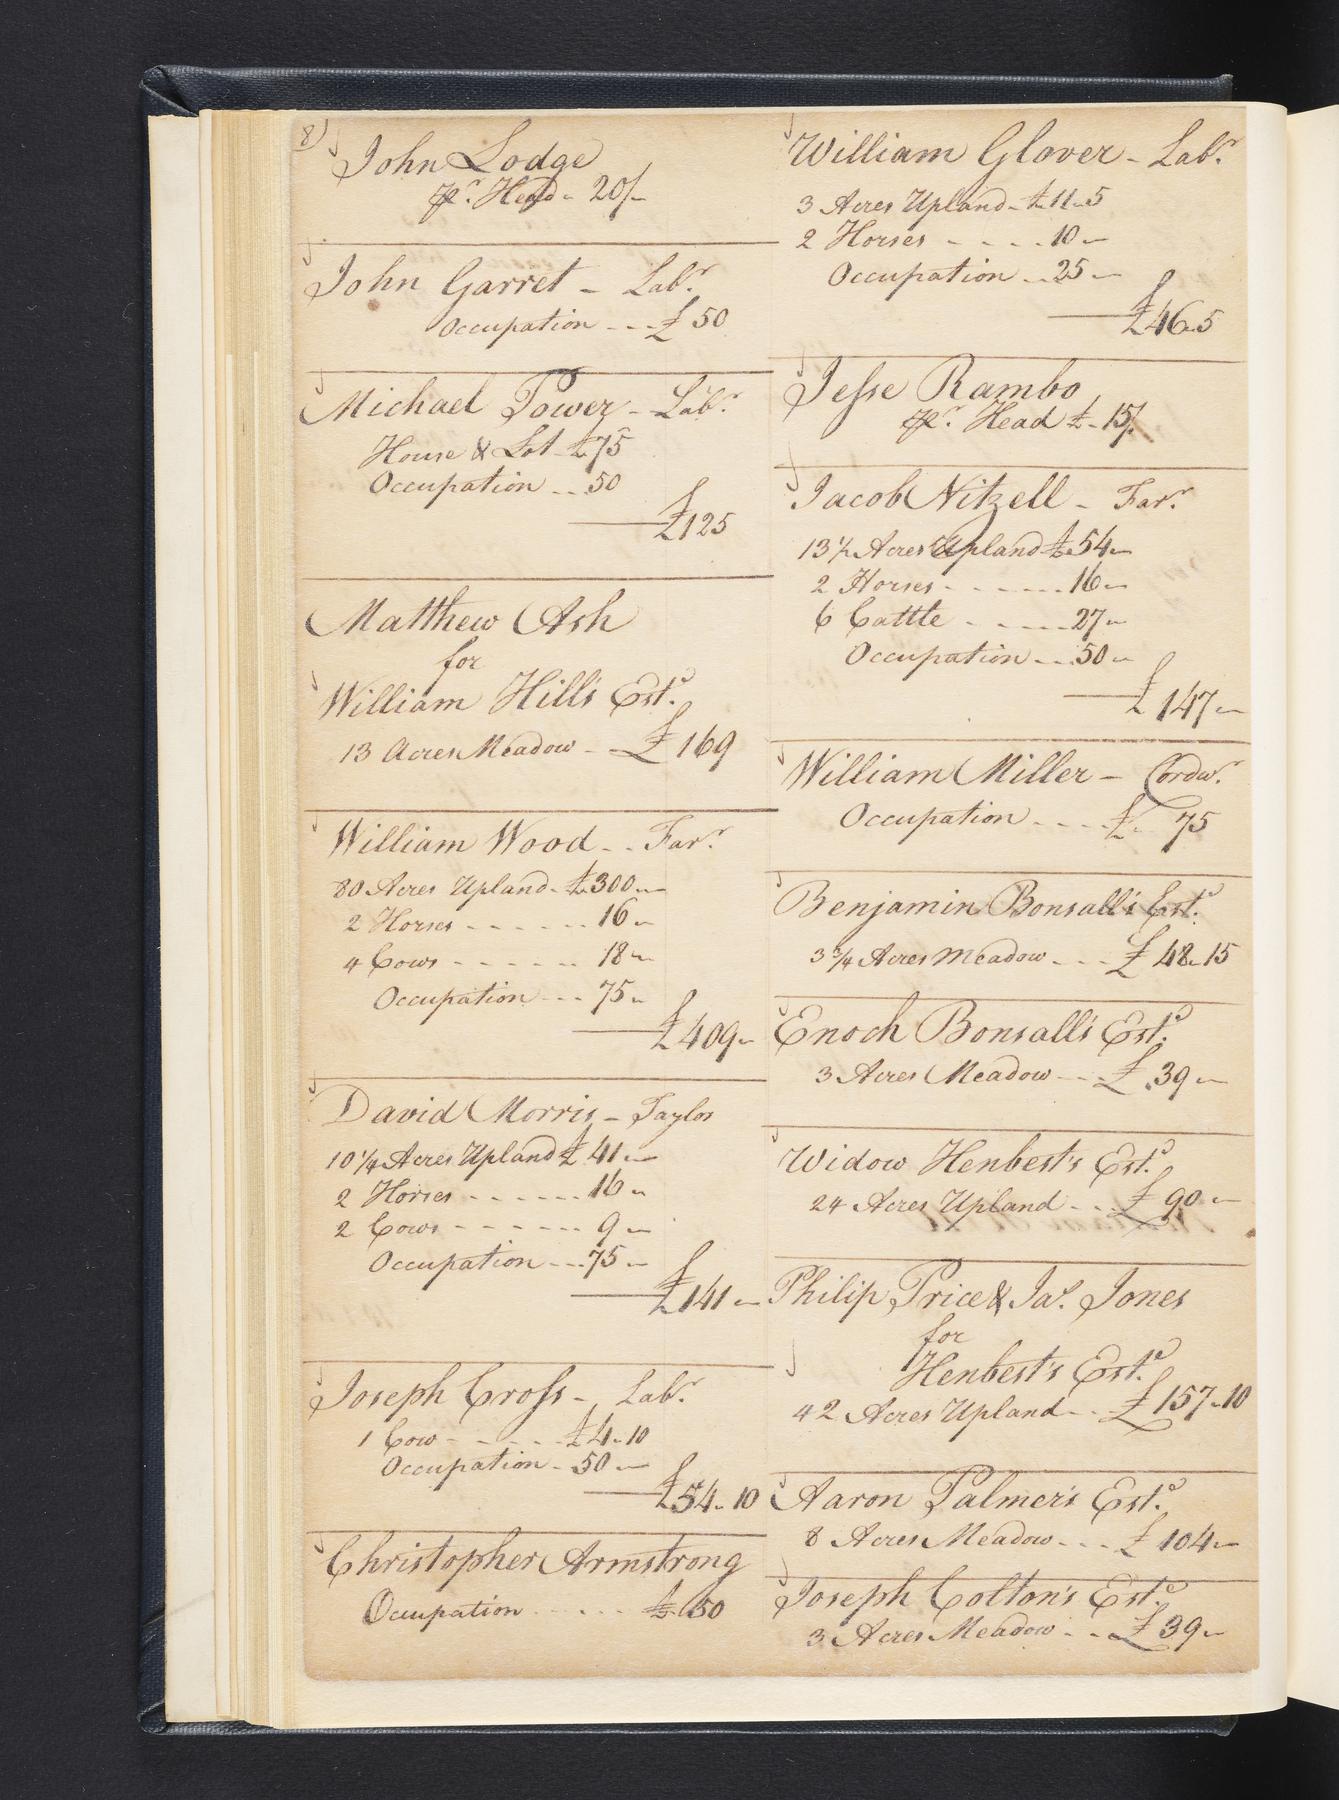 8)
John Lodge
pr. Head - 20/-
John Garret - Labr.
Occupation - - - £ 50
Michael Power - Labr.
House & Lot £75
Occupation - - 50
£125
Matthew Ash
for
William Hill's Este.
13 Acres Meadow - £ 169
William Wood - - Farr.
80 Acres Upland - £300 -
2 Horses - - - - - - 16 -
4 Cows - - - - - - 18 -
Occupation - - - 75 -
£409 -
David Morris - Taylor
10 1/4 Acres Upland £ 41 -
2 Horses - - - - - - 16 -
2 Cows - - - - - - 9 -
Occupation - - - 75 -
£141 -
Joseph Cross - Labr.
1 Cow - - - - - £4 - 10
Occupation - 50 -
£54 - 10
Christopher Armstrong
Occupation - - - - - £ 50
William Glover - Labr.
3 Acres Upland - £11 - 5
2 Horses - - - - 10 -
Occupation - - 25 -
£46 - 5
Jesse Rambo
pr. Head £ - 15/.
Jacob Nitzell - Farr.
13 1/2 Acres Upland £54 -
2 Horses - - - - - - 16 -
6 Cattle - - - - - 27 -
Occupation - - - 50 -
£ 147 -
William Miller - Cordwr.
Occupation - - - - £ 75
Benjamin Bonsall's Este.
3 3/4 Acres Meadow - - - £ 48 - 15
Enoch Bonsall's Este.
3 Acres Meadow - - - £ 39 -
Widow Henbest's Este.
24 Acres Upland - - - £ 90 -
Philip Price & Jas. Jones
for
Henbest's Este.
42 Acres Upland - - £ 157 - 10
Aaron Palmer's Este.
8 Acres Meadow - - - £ 104 -
Joseph Colton's Este.
3 Acres Meadow - - £ 39 -